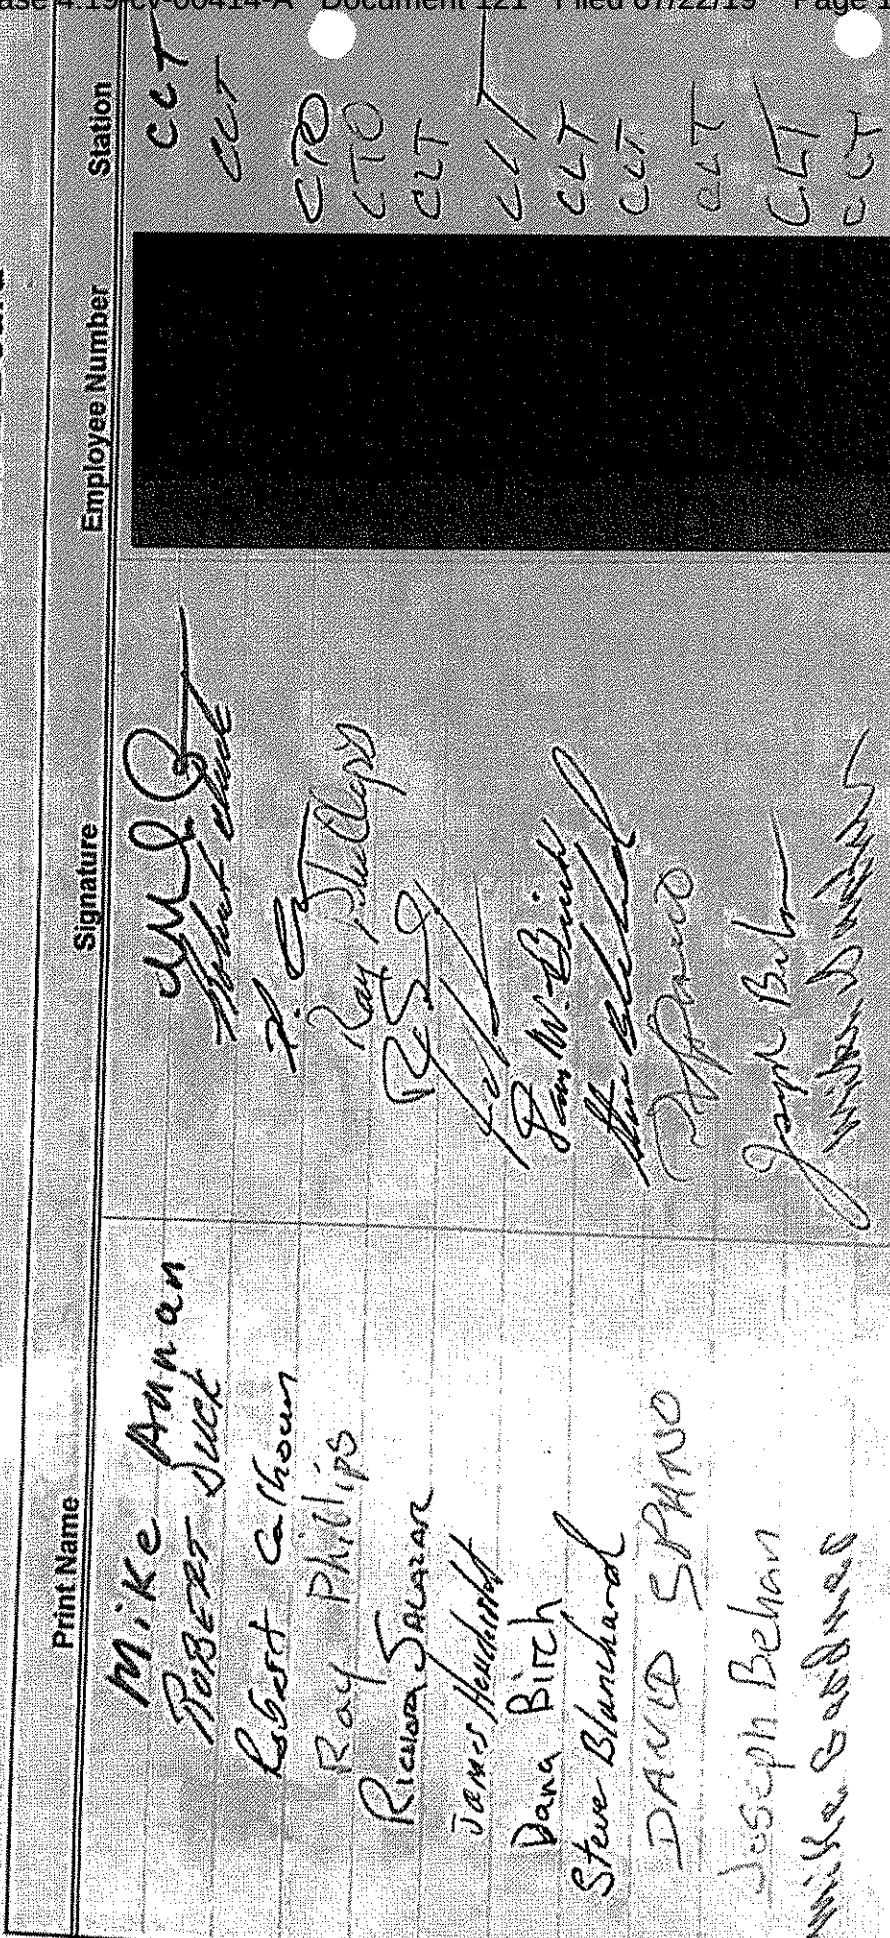 Case 4:19-cv-00414-A Document 121 Filed 07/22/19 Page 1
Print Name Signature Employee Number Station
Mike Annan CLT
ROBERT CLT
Robert Calhoun CTO
Ray Phillips Ray Phillips CTO
Richard SALAZAR CLT
James CLT
Dana Birch Dana M. Birch CLT
Steve Blanchard Steve Blanchard CLT
DAVID SPANO CLT
Joseph Behan Joseph CLT
Mike CLT